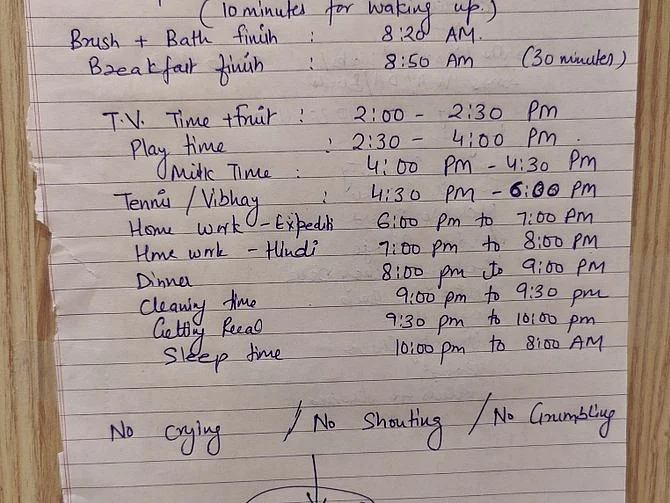 (10 minutes for waking up.)
Brush + Bath finish : 8:20 AM.
Breakfast finish : 8:50 AM (30 minutes)
T.V. Time + Fruit : 2:00 - 2:30 PM
Play time : 2:30 - 4:00 PM.
Milk Time : 4:00 PM - 4:30 PM
Tennis / Vibhay : 4:30 PM - 6:00 PM
Home work - 6:00 pm to 7:00 AM
Hme work - Hindi 7:00 pm to 8:00 PM
Dinner 8:00 pm to 9:00 PM
Cleaning time 9:00 pm to 9:30 pm
Getting 9:30 pm to 10:00 pm
Sleep time 10:00 pm to 8:00 AM
No crying / No Shouting / No Grumbling